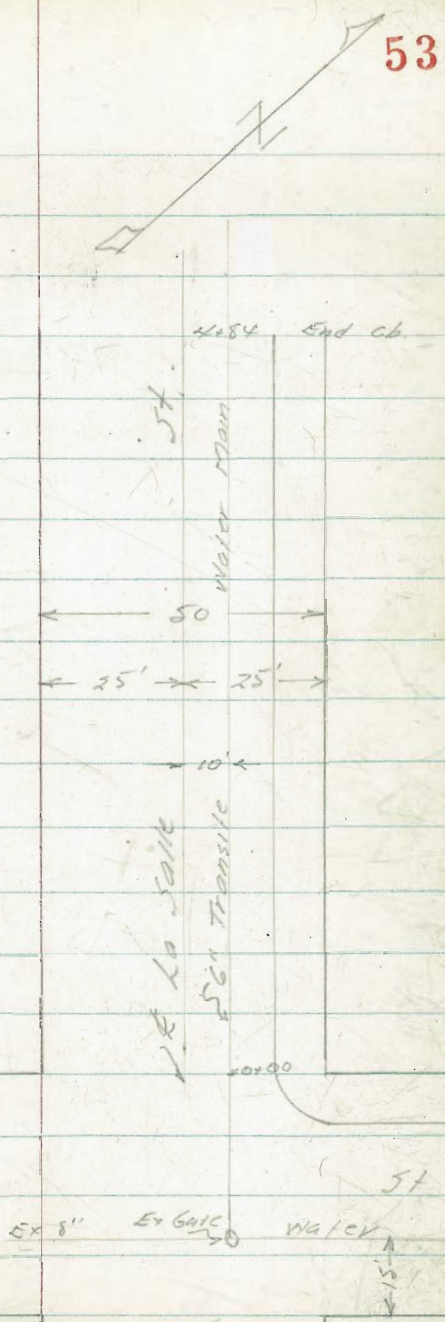 53
N
4+84 End cb.
St.
Water Main
50
25' 25'
10'
℄ La Salle
6" Transite
0+00
St
Ex 8" Ex Gate Water
15'